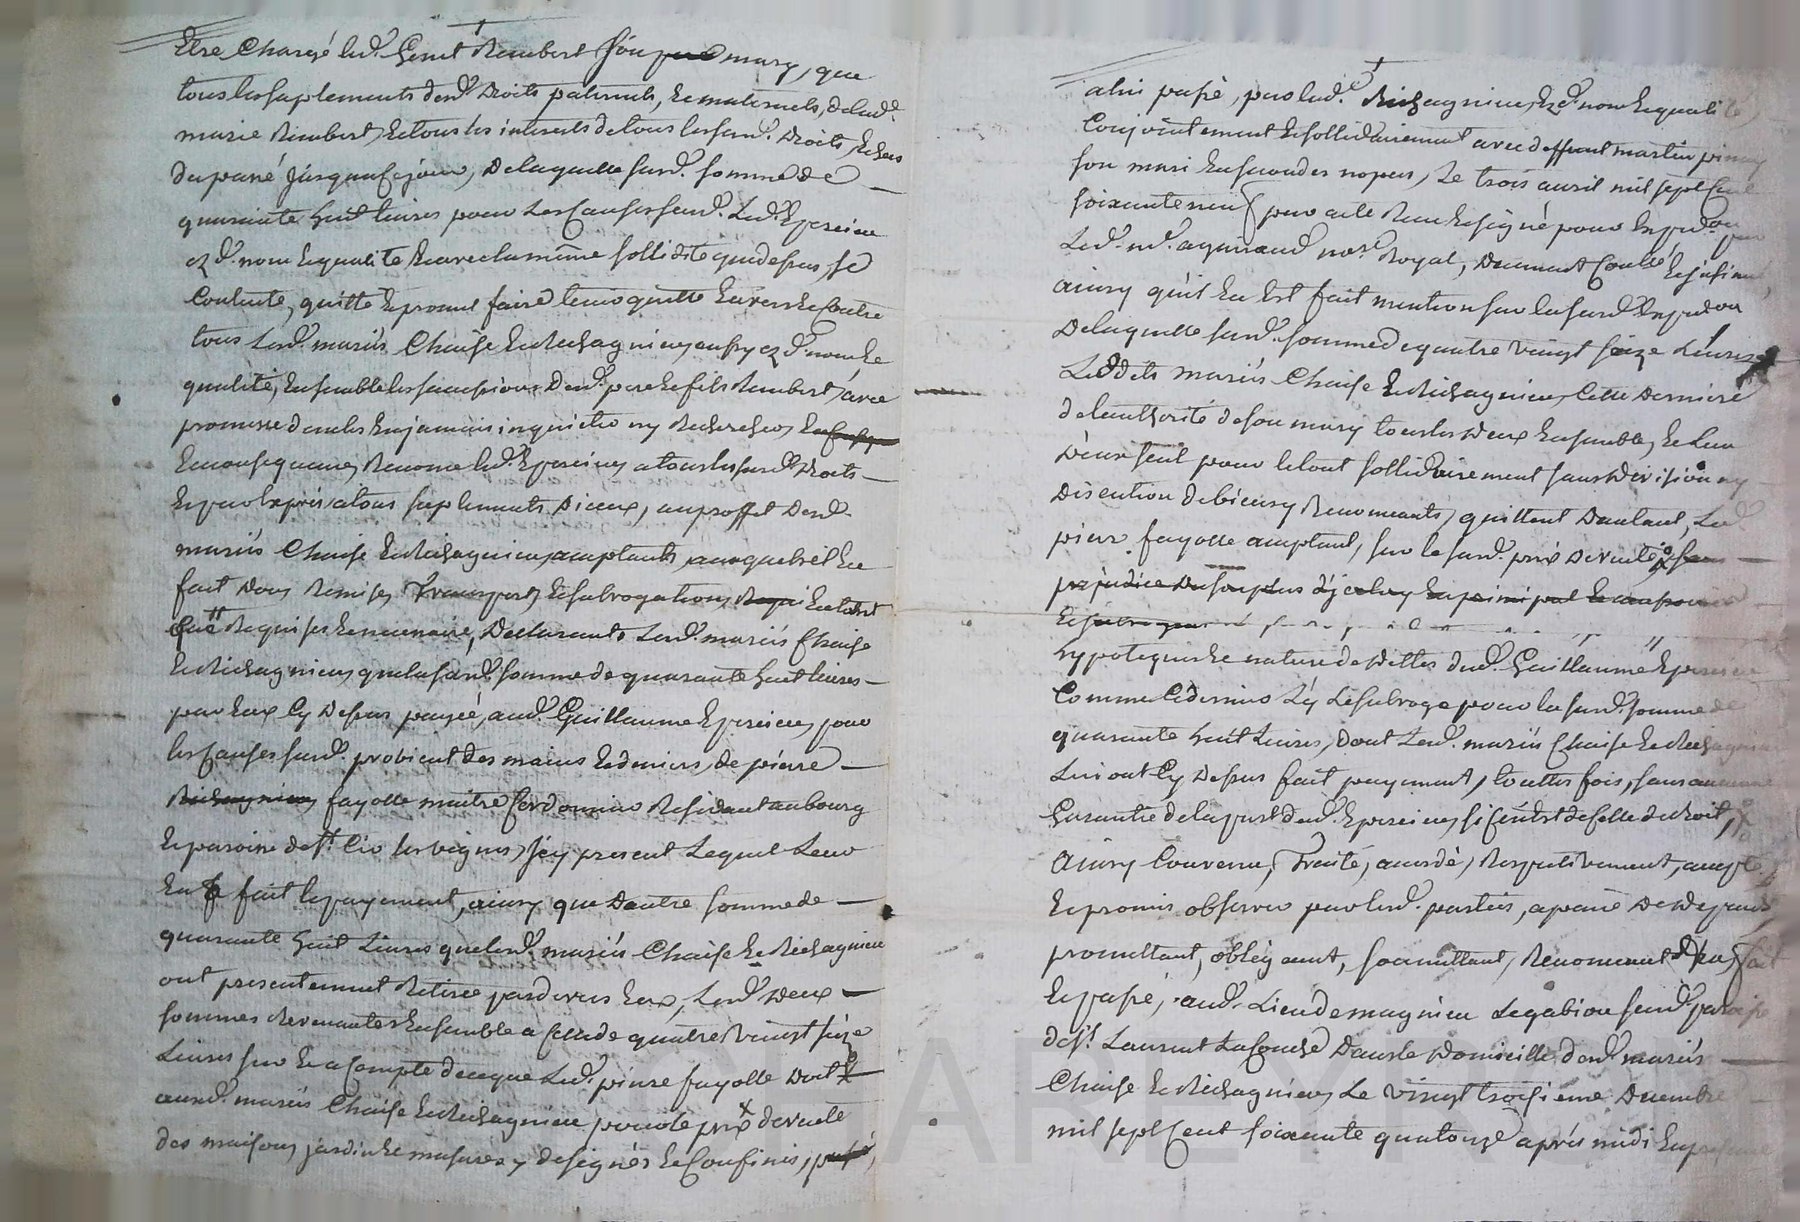 Etre Chargé lud. Genet Rimbert son pere mary, que
tous les suplements desd. Droits paternels, Ee maternels, de lad.
marie Rimbert, Ee tous les interests de tous les susd. Droits, Echeus
du passé jusquau ce jour, De laquelle susd. somme de
quarante huit livres pour Les Causes susd. Led. Epercieu
ezd. nom Ee qualité Ee avec la même sollidité que dessus, se
Contente, quitte Ee promet faire tenir quitte Envers Ee Contre
tous Lesd. mariés Chaise Ee Richagnieu, ezd. nom Ee
qualité, Ensemble les successions Desd. pere Ee fils Rimbert, avec
promesse de ne les En jamais inquietter ny Rechercher,
En consequence, Renonce led. Eperciey a tous les susd. Droits
Ee par Exprés a tous suplements Diceux, au proffit Desd.
mariés Chaise Ee Richagnieu, acceptants, auxquels il En
fait Dons Remises Transports Ee subrogations
Requises Ee necessaire, Declarants Lesd. mariés Chaise
Ee Richagnieu, que la susd. somme de quarante huit livres
par Eux Cy Dessus payée, aud. Guillaume Eperciey, pour
les Causes susd. provient des mains Ee deniers, de pierre
Richagnieu fayolle maitre Cordonnier Residant au bourg
Ee paroisse de St. Cir les vignes, Jcy present Lequel Leur
En a fait le payement, ainsy que Dautre somme de
quarante huit Livres que lesd. mariés Chaise Ee Richagnieu
ont presentement Retirée par devers Eux, Lesd. Deux
sommes Revenantes Ensemble a Celle de quatre vingt seize
Livres sur Ee a Compte de ce que Led. pierre fayolle Doit
auxd. mariés Chaise Ee Richagnieu pour le prix de vente
des maisons, jardin Ee masures y designés Ee Confinés, passé,
a lui passé, par lad. Richagnieu, Ezd. nom Ee qualité,
Conjointement Ee sollidairement avec deffunt martin
son mari En secondes nopces, Le trois avril mil sept Cent
soixante neuf, par acte Receu Ee signé pour Expedon par
Led. me. aymard nore. Royal, Deuement Controllé Ee insinué,
ainsy qu'il En Est fait mention sur la susd. Expedon
De laquelle susd. somme de quatre vingt seize Livres
Lesdits mariés Chaise Ee Richagnieu, Cette Derniere
de l'authorité de son mary tous les deux Ensemble, Ee Lun
D'eux seul pour le tout sollidairement sans Division ny
Discution de biens y Renonceants, quittent Dautant, Led.
pierre fayolle acceptant, sur le susd. prix De vente, sans
prejudice Du surplus Ee principal
hypoteques Ee nature de dettes dud. Guillaume Eperciey
Comme Ce dernier L'y Le subroge pour la susd. somme de
quarante huit Livres, Dont Lesd. mariés Chaise Ee Richagnieu
Lui ont Cy Dessus fait payement, touttes fois, sans aucune
Garantie de la part dud. Eperciey, si Ce n'est de Celle de droit,
ainsy Convenu, Traité, accordé, Respectivement, accepté
Ee promis observer par lesd. parties, a peine De Depens
promettant, obligeant, soumettant, Renonceant &ca, fait
Ee passé, aud. Lieu de magnieu Legabion susd. paroisse
de St. Laurent La Conche Dans le Domicille desd. mariés
Chaise Ee Richagnieu, Le vingt troisieme Decembre
mil sept Cent soixante quatorze aprés midi En presence